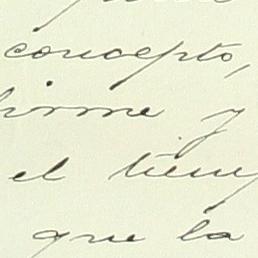 concepto,
firme y
el tiem
que la